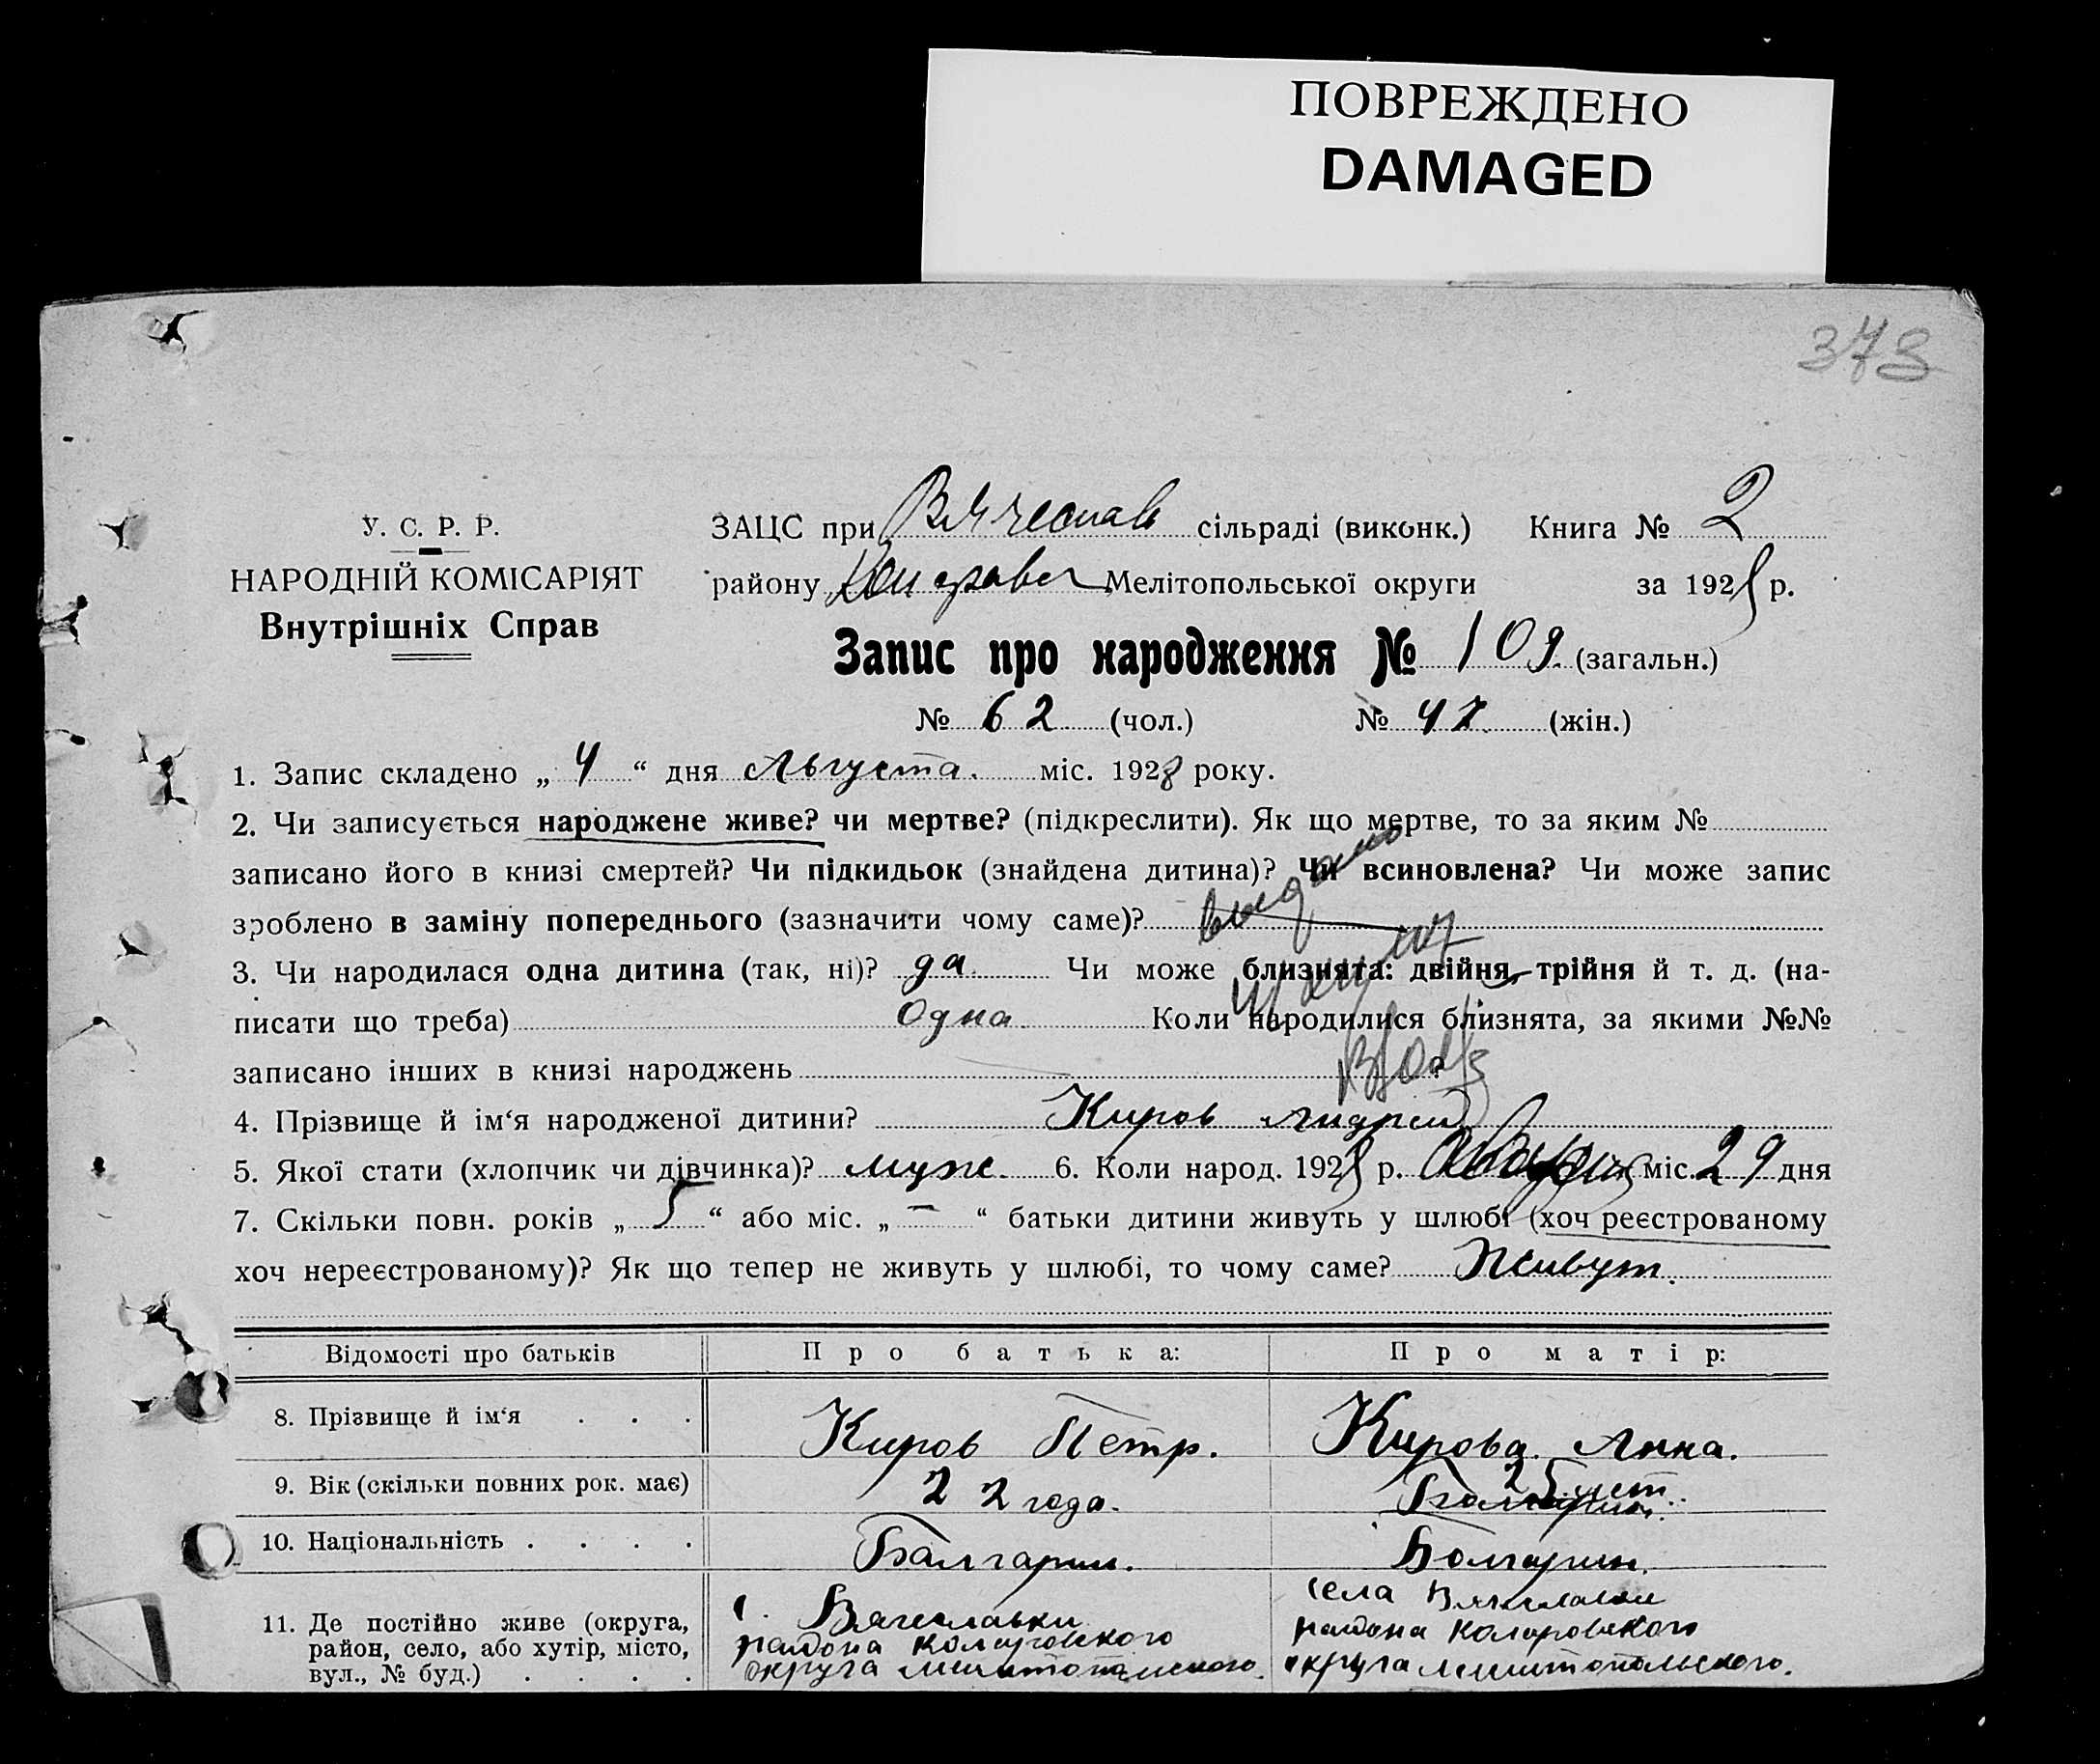 ПОВРЕЖДЕНО
DAMAGED
373
У. С. Р. Р.
НАРОДНІЙ КОМІСАРІЯТ
Внутрішніх Справ
ЗАЦС при Вячеслав сільраді (виконк.) Книга № 2
району Мелітопольської округи за 1928 р.
Запис про народження № 109. (загальн.)
№ 62 (чол.) № 47 (жін.)
1. Запис складено „ 4 “ дня Августа. міс. 1928 року.
2. Чи записується народжене живе? чи мертве? (підкреслити). Як що мертве, то за яким №
записано його в книзі смертей? Чи підкидьок (знайдена дитина)? Чи всиновлена? Чи може запис
зроблено в заміну попереднього (зазначити чому саме)?
видано
3. Чи народилася одна дитина (так, ні)? да. Чи може близнята: двійня, трійня й т. д. (на-
писати що треба) Одна. Коли народилися близнята, за якими №№
записано інших в книзі народжень ?
4. Прізвище й ім‘я народженої дитини? Киров Андрей
5. Якої стати (хлопчик чи дівчинка)? муж. 6. Коли народ. 1928 р. міс. 29 дня
7. Скільки повн. років „ 5 “ або міс. „ — “ батьки дитини живуть у шлюбі (хоч реєстрованому
хоч нереєстрованому)? Як що тепер не живуть у шлюбі, то чому саме? Живут.
Відомості про батьків Про батька: Про матір:
8. Прізвище й ім‘я . . . Киров Петр. Кирова. Анна.
9. Вік (скільки повних рок. має) 22 года. 25 лет.
10. Національність . . . . Балгарин. Болгарин.
11. Де постійно живе (округа, с. Вячеславки села Вячеславки
район, село, або хутір, місто, района Коларовского района Коларовского
вул., № буд.) . . . . округа Мелитопольского. округа Мелитопольского.